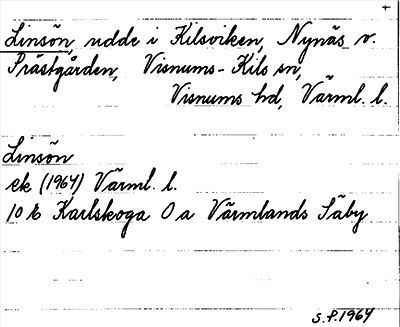 Linsön, udde i Kilsviken, Nynäs v.
Prästgården, Visnums-Kils sn,
Visnums hd, Värml. l.
Linsön
ek (1964) Värml. l.
10 E Karlskoga 0 a Värmlands Säby
S.P. 1964